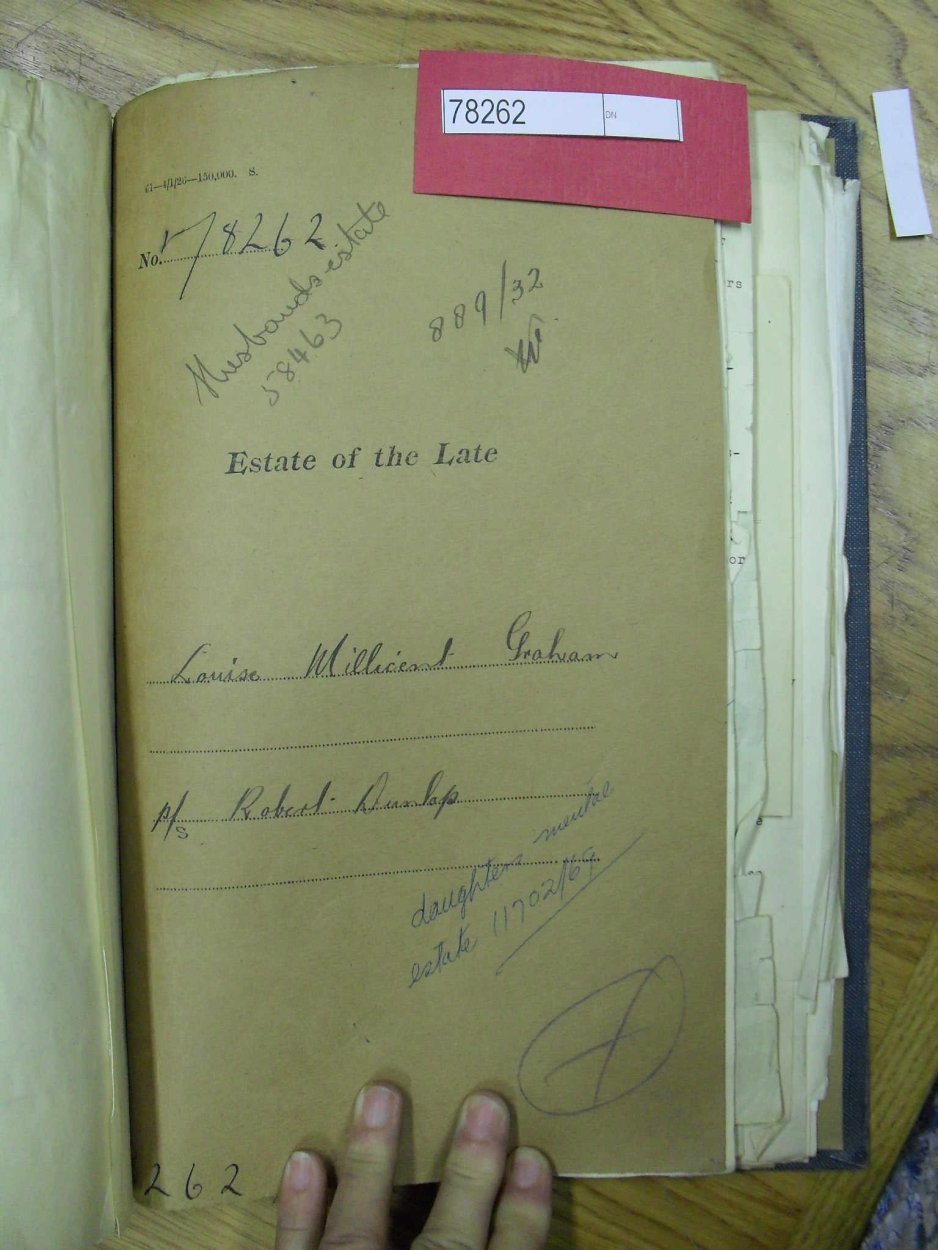 78262 DN
61—4/1/26—150,000. S.
No. 78262
Husbands estate
58463
889/32
Estate of the Late
Louise Millicent Graham
p/s Robert Dunlop
daughters mental
estate 11702/69
262
rs
or